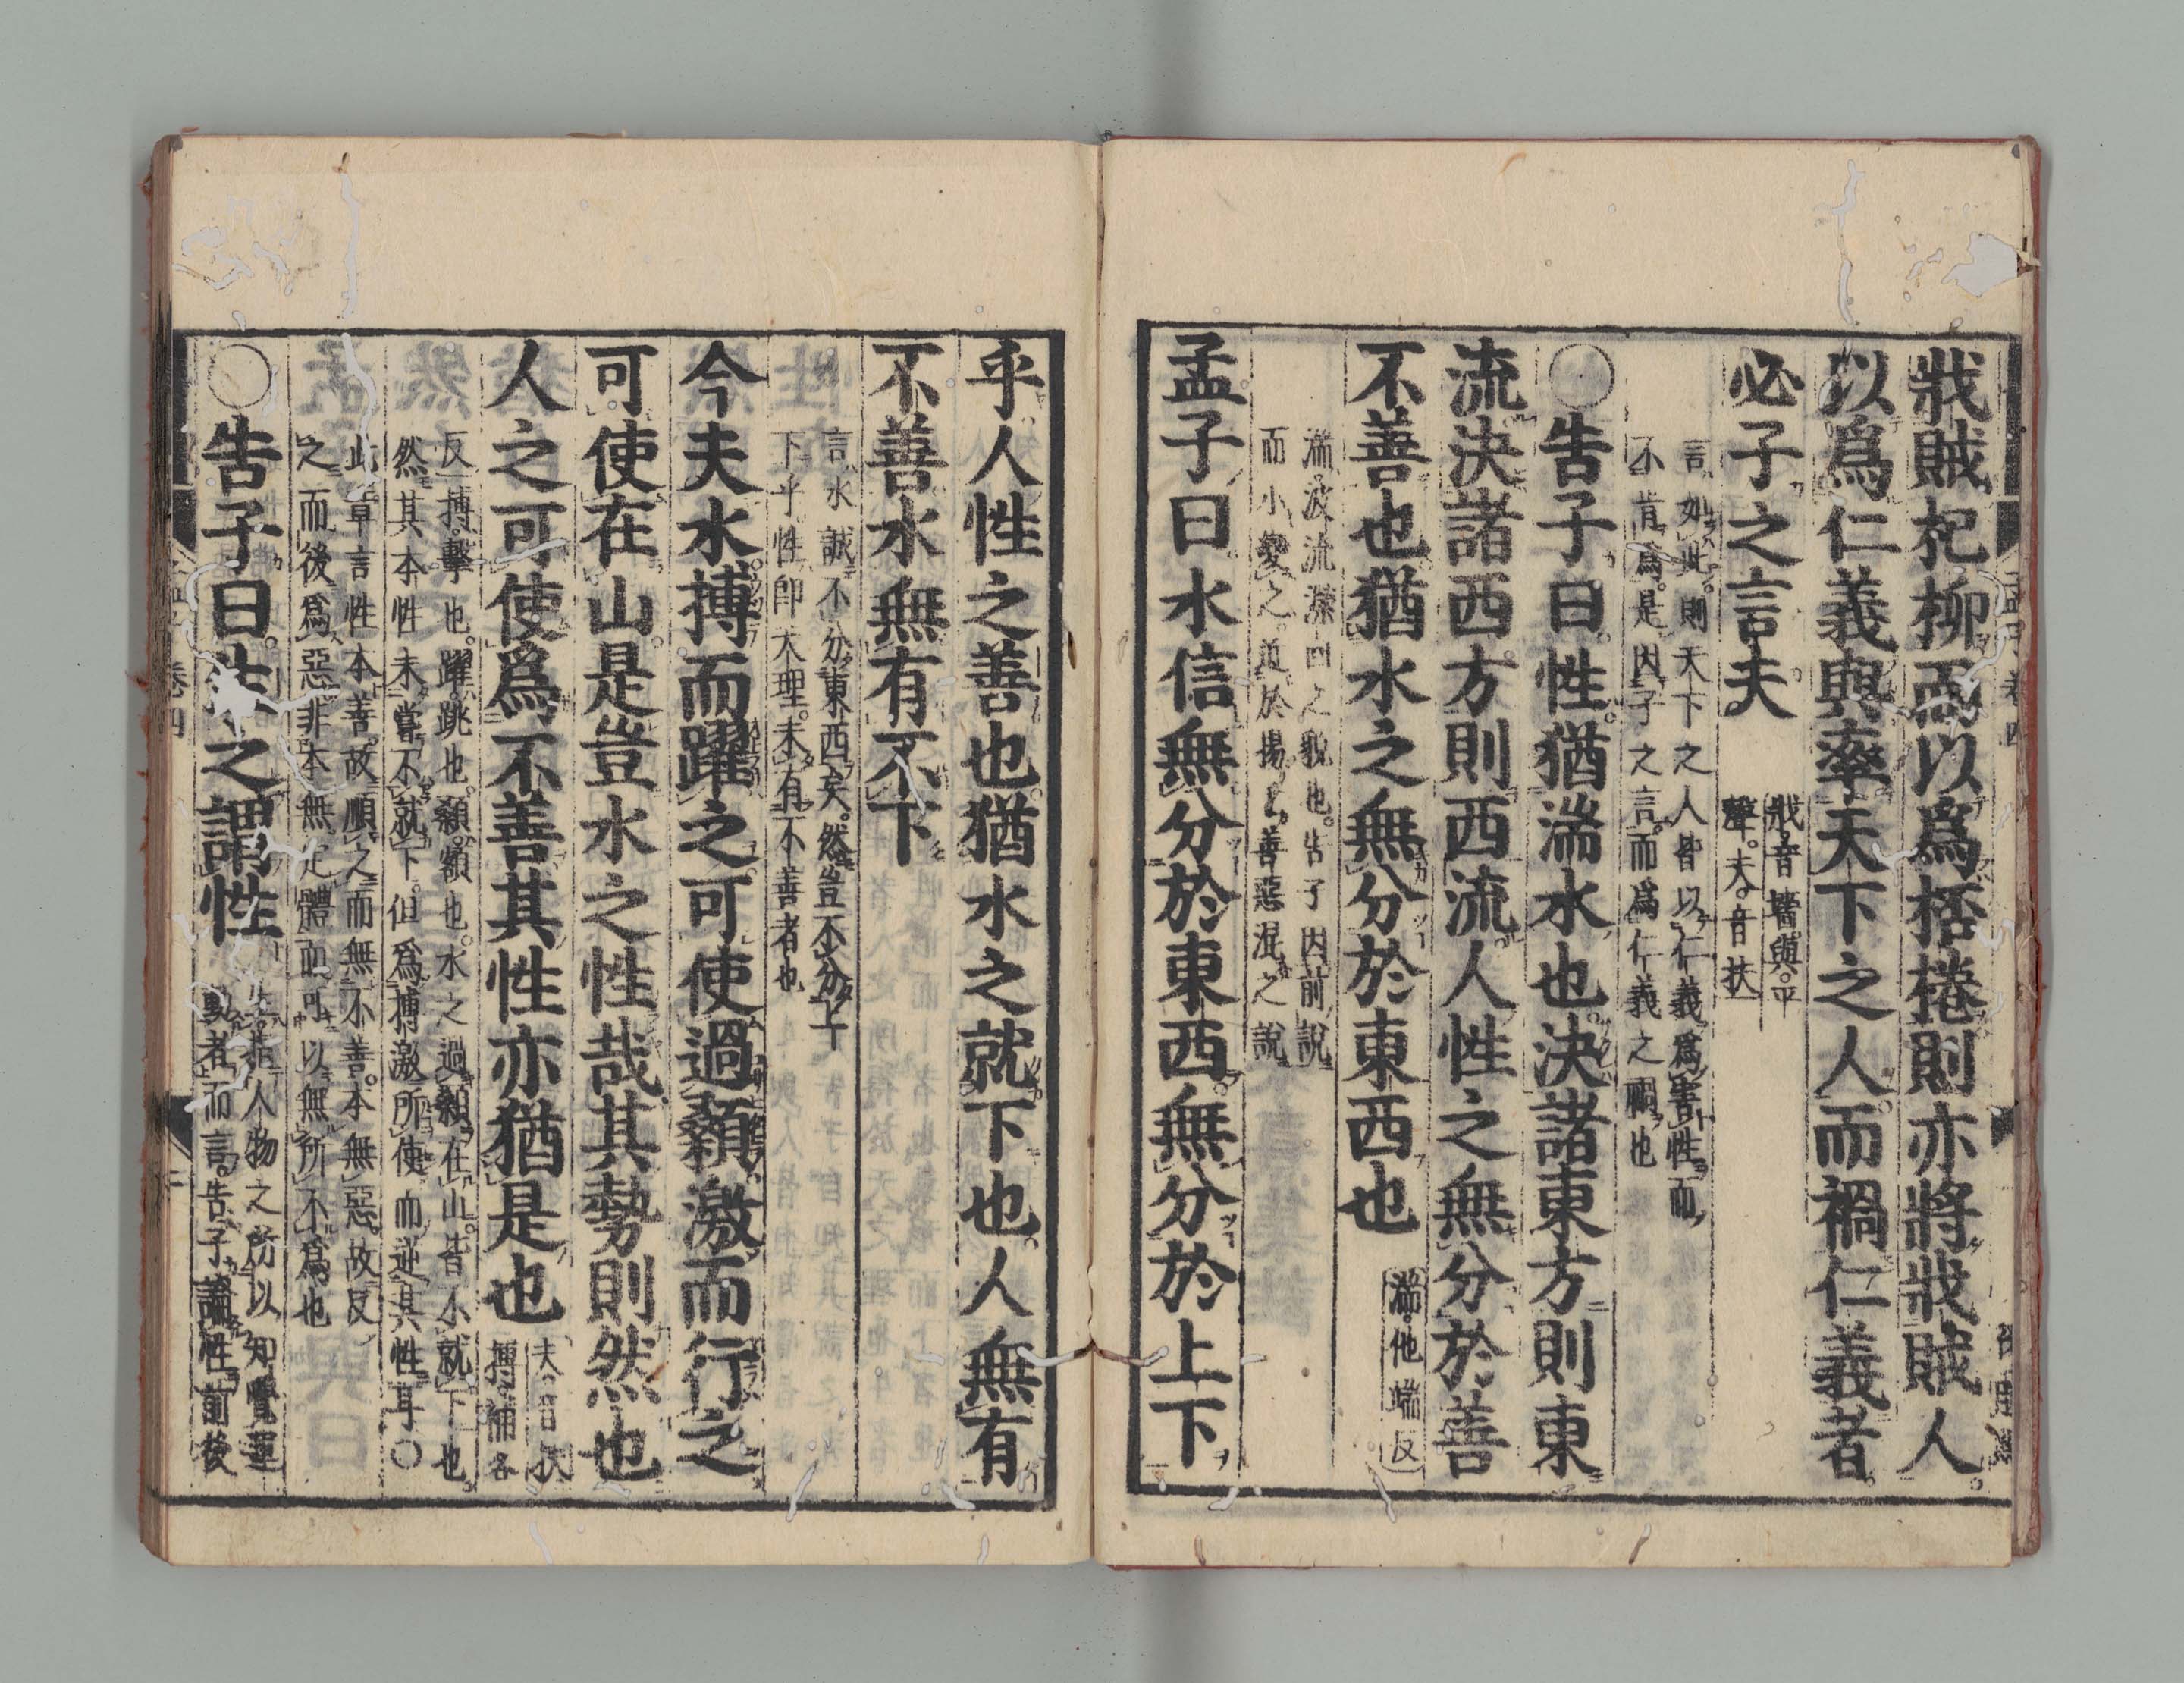 戕賊杞柳而以爲桮棬則亦將戕賊人
以爲仁義與率天下之人而禍仁義者
必子之言夫
戕。音牆。與。平
聲。夫。音扶
言如此。則天下之人皆以仁義爲害性而
不肯爲。是因子之言。而爲仁義之禍也
○告子曰。性。猶湍水也。決諸東方則東
流決諸西方則西流。人性之無分於善
不善也猶水之無分於東西也
湍。他端反
湍波流瀠回之貌也。告子因前說
而小變之。近於揚子善惡混之說
孟子曰水信無分於東西。無分於上下
乎人性之善也。猶水之就下也。人無有
不善水無有不下
言水誠不分東西矣。然豈不分上下
下乎性卽天理。未有不善者也
今夫水。搏而躍之。可使過顙。激而行之
可使在山。是豈水之性哉。其勢則然也
人之可使爲不善其性亦猶是也
夫。音扶
搏。補各
反搏。擊也。躍。跳也。顙。額也。水之過顙在山。皆不就下也。
然其本性未嘗不就下。但爲搏激所使而逆其性耳○
此章言性本善。故順之而無不善。本無惡。故反
之而後爲惡。非本無定體而可以無所不爲也
○告子曰。生之謂性
生。指人物之所以知覺運
動者而言。告子論性前後